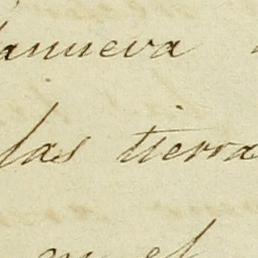 lanueva
las tierra
en el